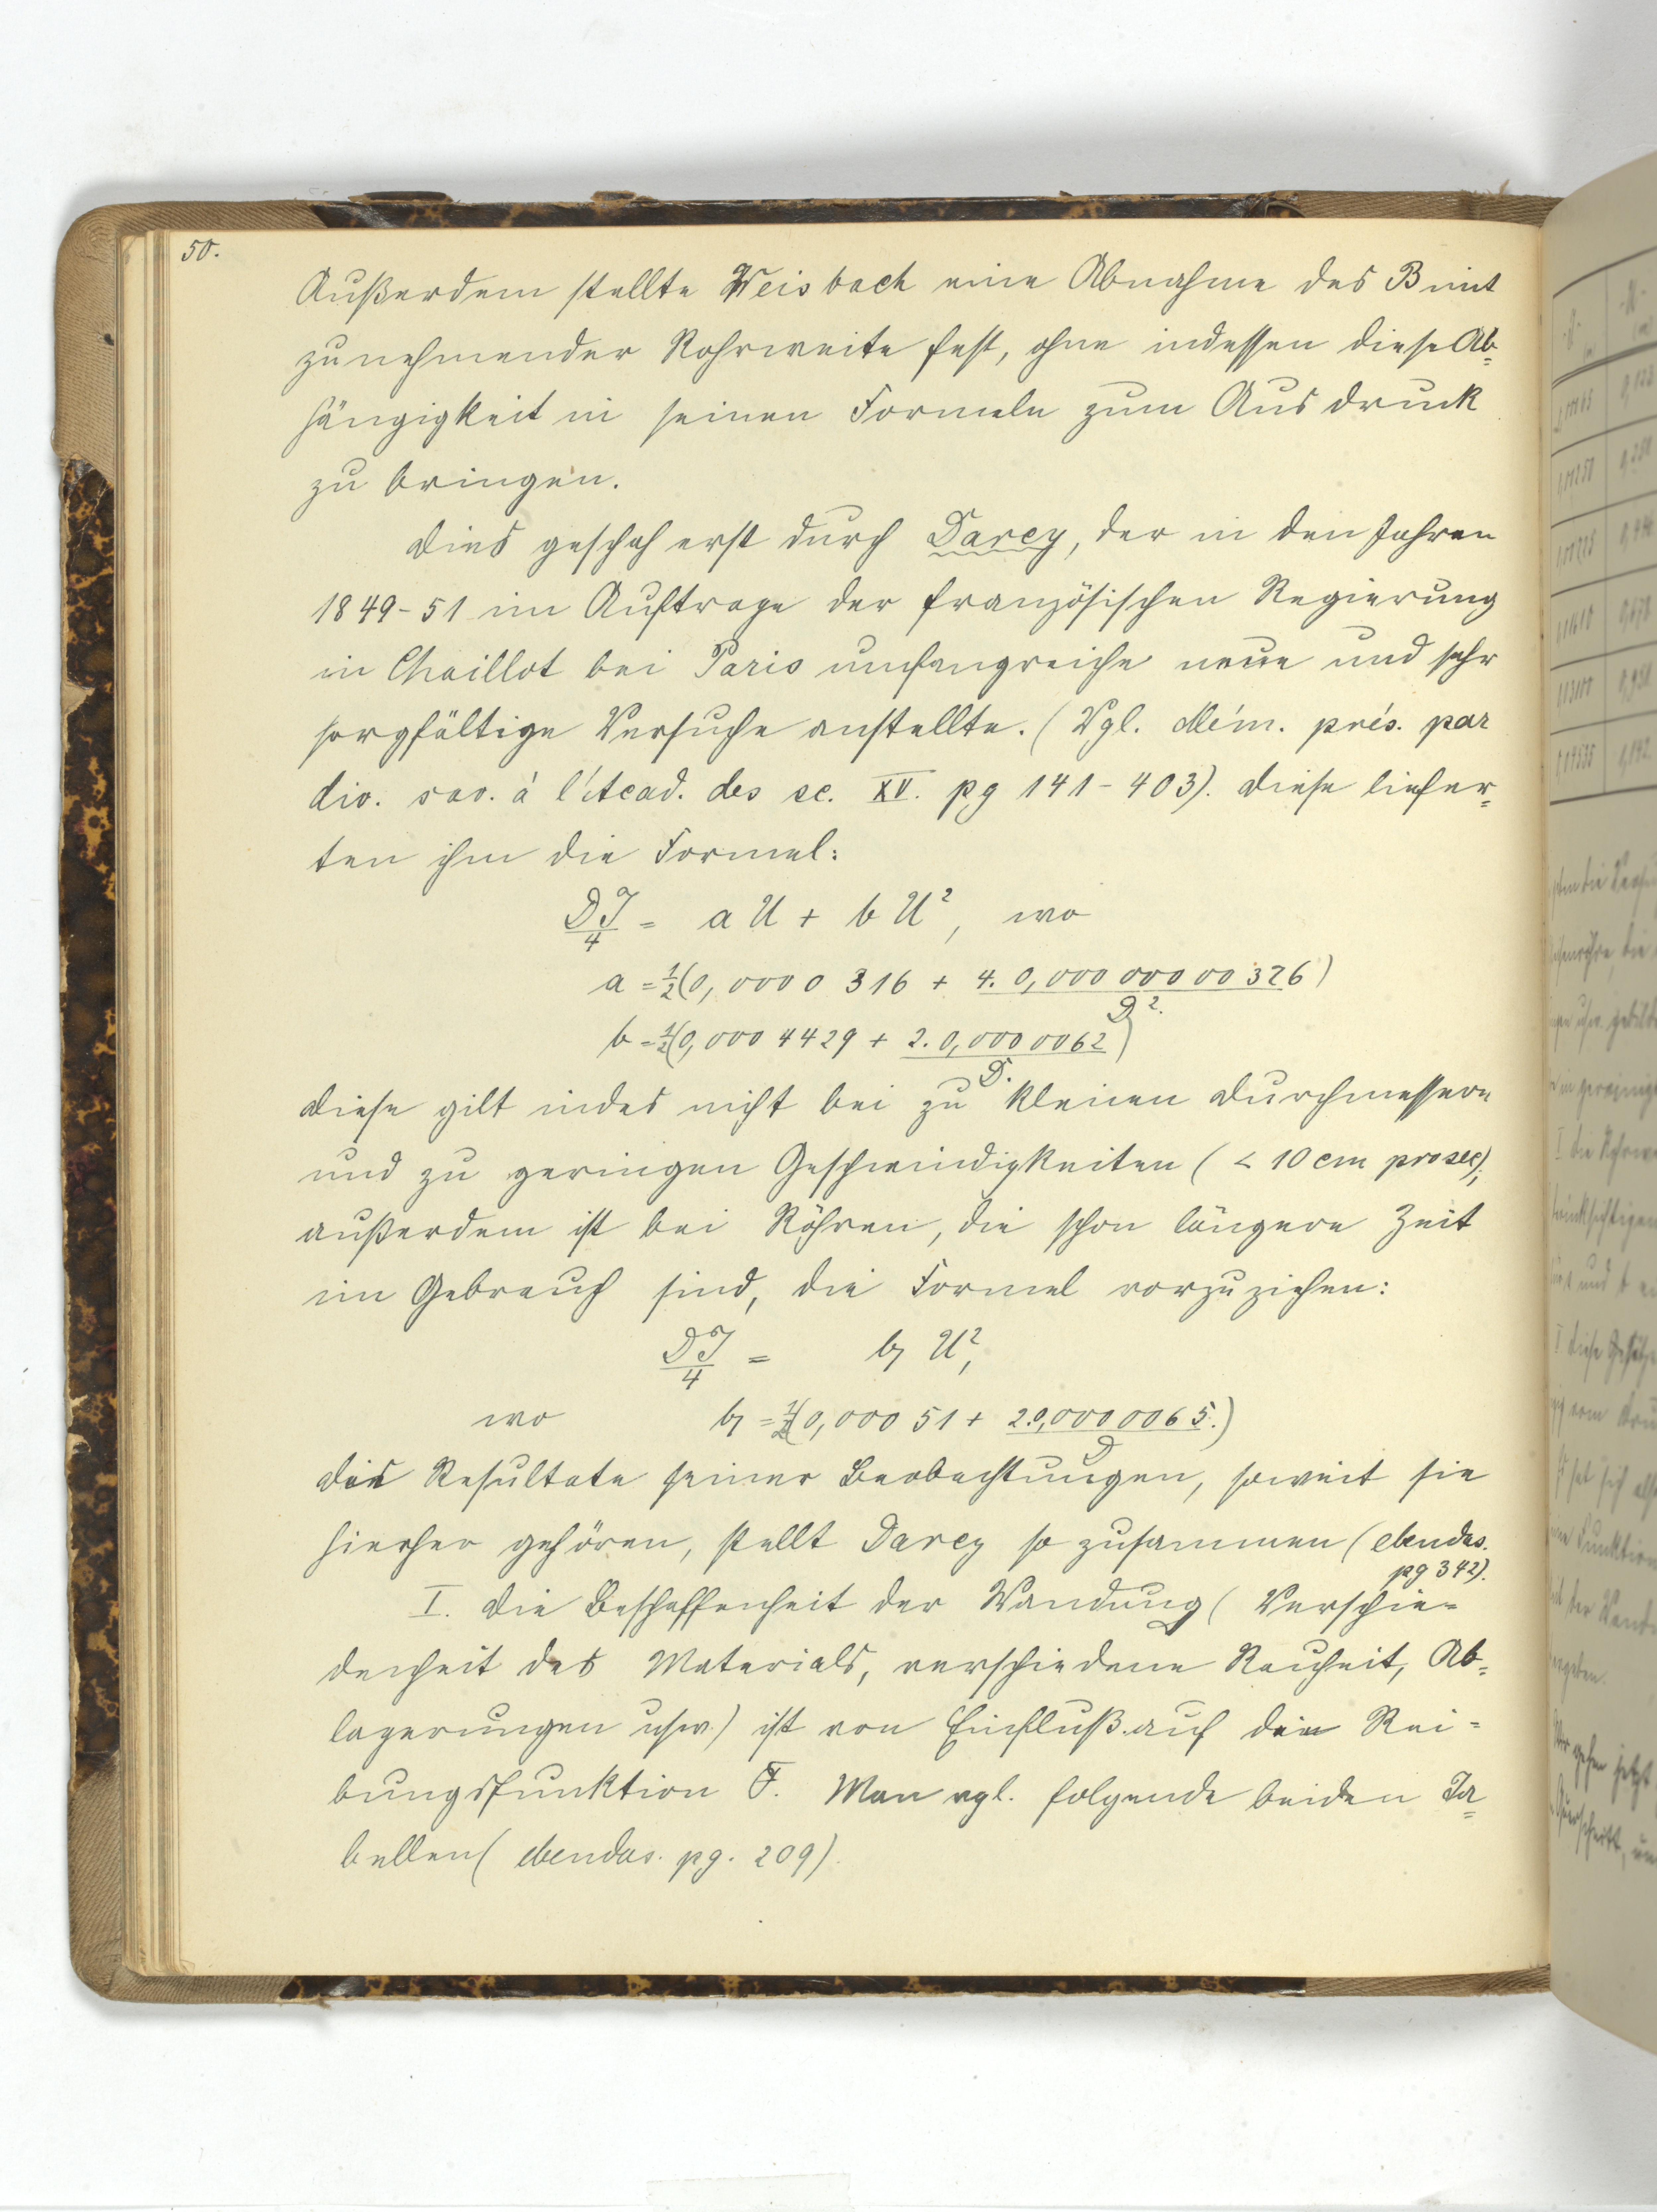 50.
Außerdem stellte Weisbach eine Abnahme des B mit
zunehmender Rohrweite fest, ohne indessen diese Ab=
hängigkeit in seinen Formeln zum Ausdruck
zu bringen.
Dies geschah erst durch Darcy, der in den Jahren
1849-51 im Auftrage der französischen Regierung
in Chaillot bei Paris umfangreiche neue und sehr
sorgfältige Versuche anstellte. (Vgl. Mém. prés. par
div. sav. à l'Acad. des sc. XV. pg 141-403). Diese liefer=
ten ihm die Formel:
DJ/4 = a U + b U², wo
a = 1/2 (0,0000 316 + 4. 0,000 000 00 326/D².)
b = 1/2 (0,000 4429 + 2. 0,000 0062/D.)
Diese gilt indes nicht bei zu kleinen Durchmessern
und zu geringen Geschwindigkeiten (< 10 cm pro sec);
außerdem ist bei Röhren, die schon längere Zeit
im Gebrauch sind, die Formel vorzuziehen:
DJ/4 = b₁ U²,
wo b₁ = 1/2 (0,000 51 + 2.0,000 0065./D)
Die Resultate seiner Beobachtungen, soweit sie
hierher gehören, stellt Darcy so zusammen (ebendas.
pg 342).
I. Die Beschaffenheit der Wandung (Verschie=
denheit des Materials, verschiedene Rauheit, Ab=
lagerungen usw.) ist von Einfluß auf die Rei=
bungsfunktion F. Man vgl. folgende beiden Ta=
bellen (ebendas. pg. 209).